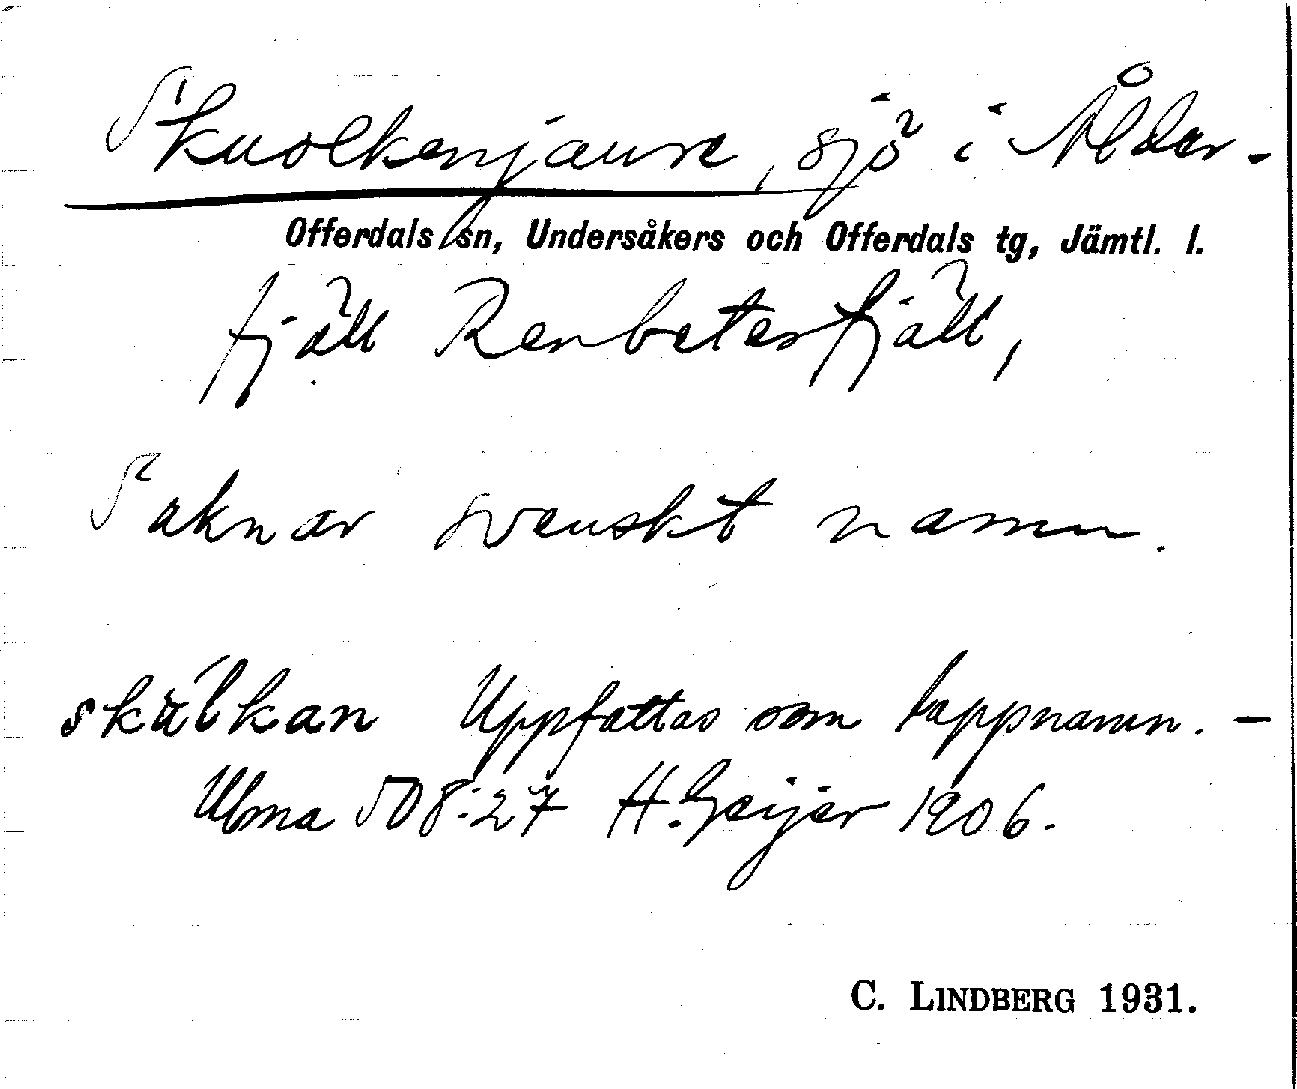 Skuolkenjaure, sjö i Ålder-
Offerdals sn, Undersåkers och Offerdals tg, Jämtl. l.
fjäll Renbetesfjäll,
Saknar svenskt namn.
skålkan Uppfattas som lappnamn. –
Ulma 508:27 H. Geijer 1906.
C. LINDBERG 1931.